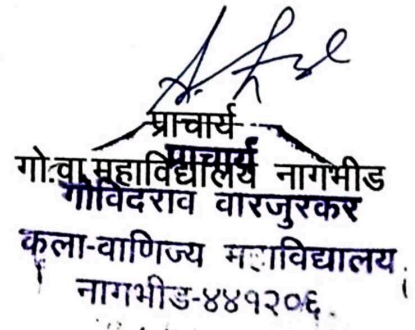 प्राचार्य
प्राचार्य
गो.वा.महाविद्यालय नागभीड
गोविंदराव वारजुरकर
कला-वाणिज्य महाविद्यालय
नागभीड-४४१२०६.